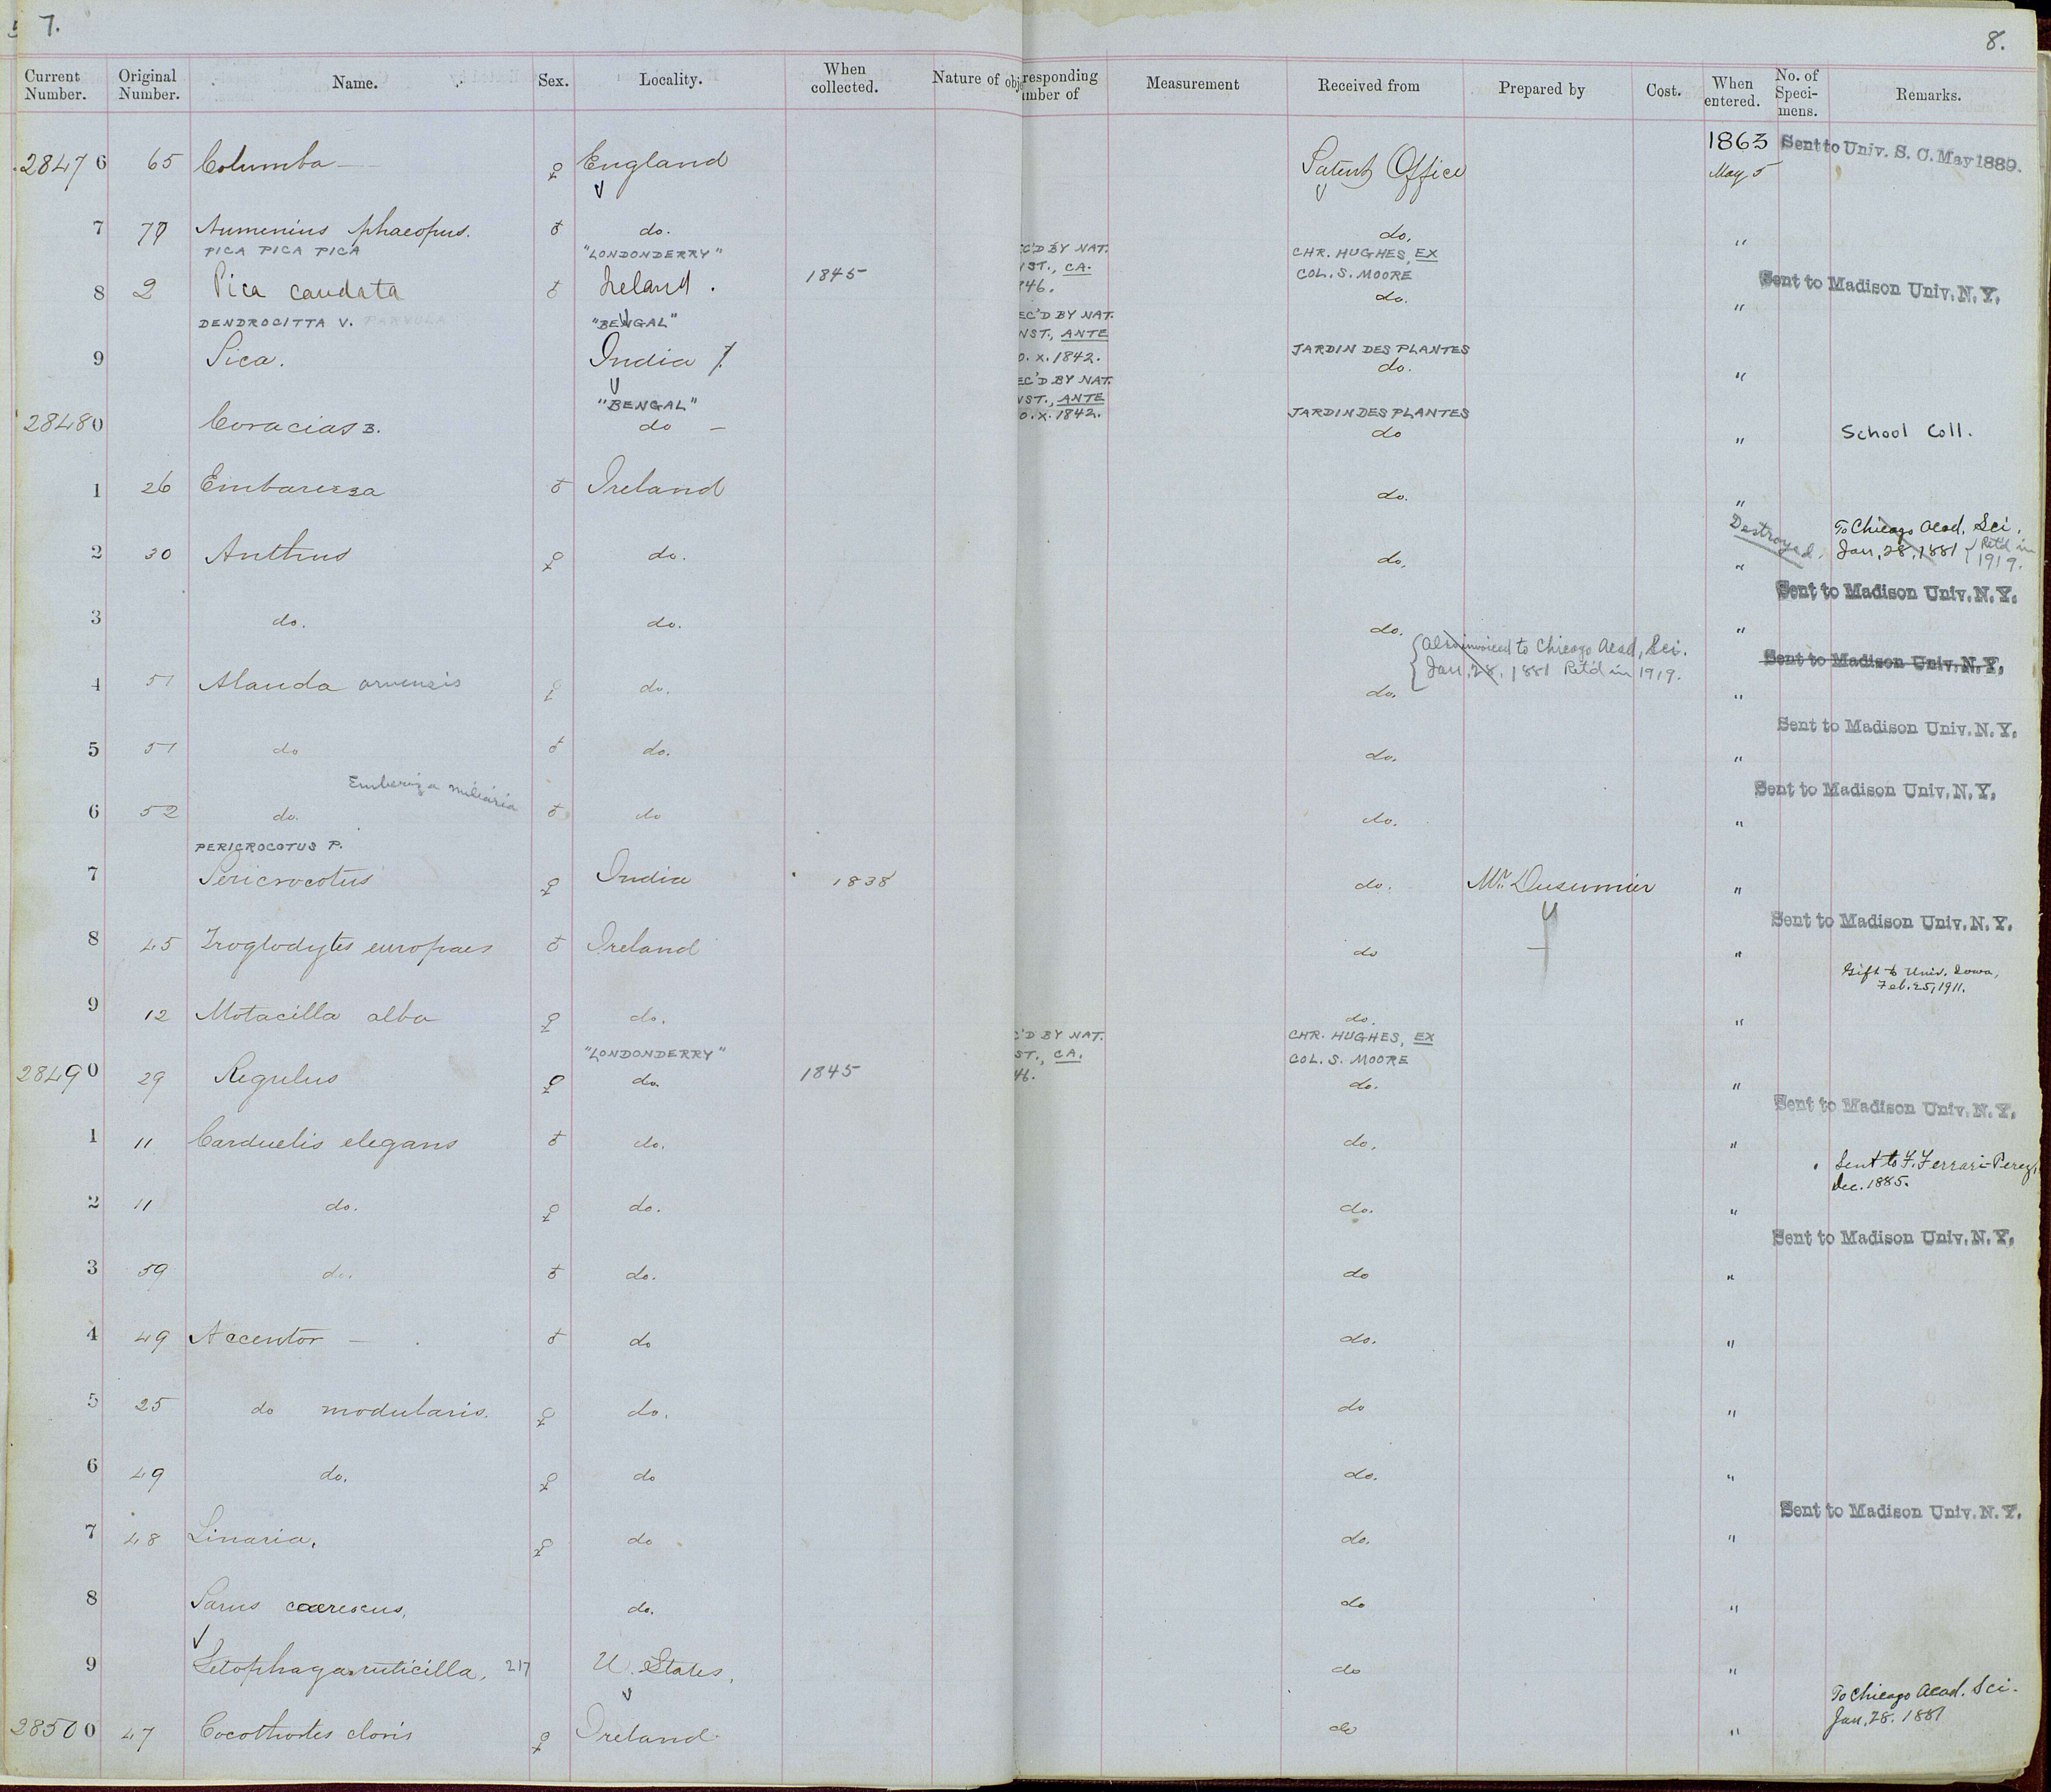 7.
8.
Current Number. Original Number. Name. Sex. Locality. When collected. Nature of obje
responding mber of Measurement Received from Prepared by Cost. When entered. No. of Speci- mens. Remarks.
28476 65 Columba — ♀ England Patent Office 1863 May 5 Sent to Univ. S. C. May 1889.
7 77 Numenius phaeopus. ♂ do. do. "
PICA PICA PICA "LONDONDERRY" C'D BY NAT. ST., CA. 846. CHR. HUGHES, EX COL. S. MOORE
8 2 Pica caudata ♂ Ireland. 1845 do. " Sent to Madison Univ. N. Y.
DENDROCITTA V. PARVULA "BENGAL" EC'D BY NAT. NST., ANTE 0. X. 1842. JARDIN DES PLANTES
9 Pica. India do. "
"BENGAL" EC'D BY NAT. NST., ANTE 0. X. 1842. JARDIN DES PLANTES
28480 Coracias B. do — do " School Coll.
1 26 Embereza ♂ Ireland do. "
2 30 Anthus ♀ do. do. " Destroyed. To Chicago Acad. Sci. Jan. 28. 1881 { Ret'd in 1919.
3 do. do. do. " Sent to Madison Univ. N. Y.
{ Also invoiced to Chicago Acad. Sci. Jan. 28. 1881 Ret'd in 1919.
4 51 Alauda arvensis ♀ do. do. " Sent to Madison Univ. N. Y.
5 51 do ♂ do. do. " Sent to Madison Univ. N. Y.
Emberiza miliaria
6 52 do. ♂ do do. " Sent to Madison Univ. N. Y.
PERICROCOTUS P.
7 Pericrocotus ♀ India 1838 do. Mr. Dusumier "
8 45 Troglodytes europaes ♂ Ireland do " Sent to Madison Univ. N. Y.
9 12 Motacilla alba ♀ do. do. " Gift to Univ. Iowa, Feb. 25, 1911.
"LONDONDERRY" C'D BY NAT. ST., CA. 46. CHR. HUGHES, EX COL. S. MOORE
28490 29 Regulus ♀ do. 1845 do. "
1 11 Carduelis elegans ♂ do. do. " Sent to Madison Univ. N. Y.
2 11 do. ♀ do. do. " Sent to F. Ferrari-Perez, Dec. 1885.
3 59 do. ♂ do. do " Sent to Madison Univ. N. Y.
4 49 Accentor — ♂ do do. "
5 25 do modularis. ♀ do. do "
6 49 do. ♀ do do. "
7 48 Linaria, ♀ do do. " Sent to Madison Univ. N. Y.
8 Parus do. do "
9 Setophaga ruticilla, 217 U. States, do "
28500 47 Cocothortes cloris ♀ Ireland. do " To Chicago Acad. Sci. Jan. 28. 1881